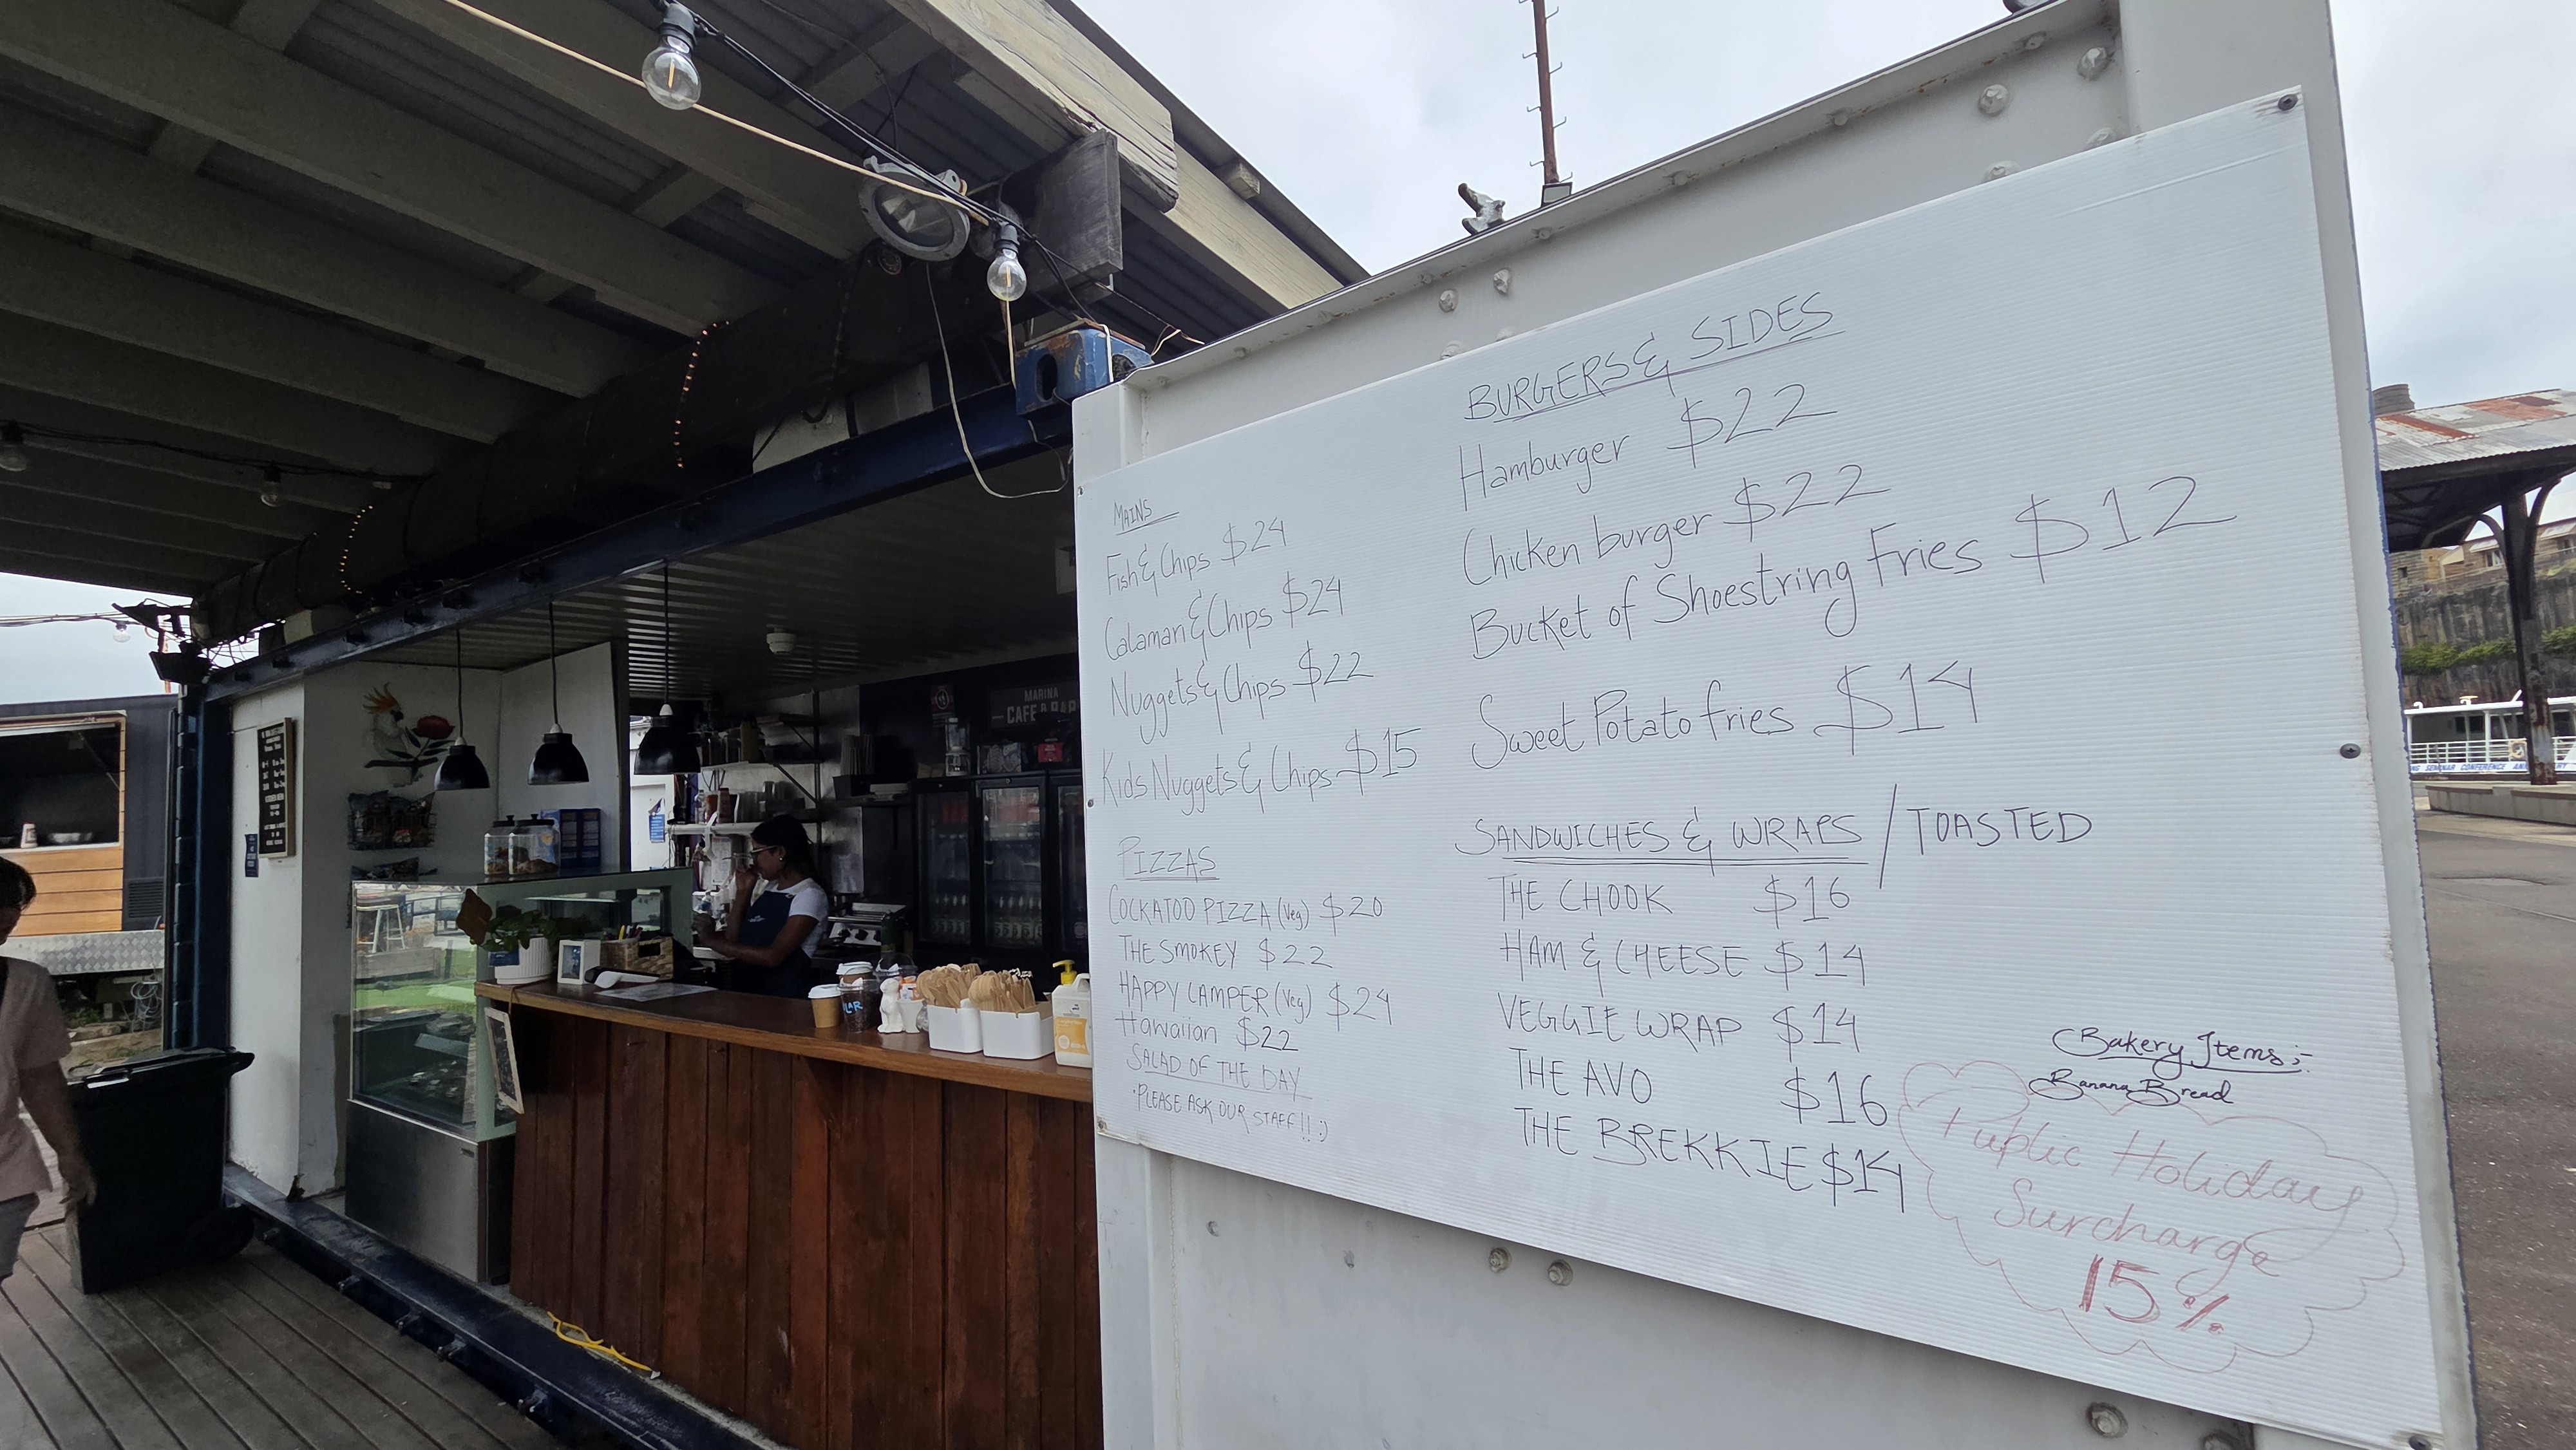 MAINS
Fish & Chips $24
Calamari & Chips $24
Nuggets & Chips $22
Kids Nuggets & Chips $15
PIZZAS
COCKATOO PIZZA (Veg) $20
THE SMOKEY $22
HAPPY CAMPER (Veg) $24
Hawaiian $22
SALAD OF THE DAY
·PLEASE ASK OUR STAFF!! :)
BURGERS & SIDES
Hamburger $22
Chicken burger $22
Bucket of Shoestring Fries $12
Sweet Potato fries $14
SANDWICHES & WRAPS / TOASTED
THE CHOOK $16
HAM & CHEESE $14
VEGGIE WRAP $14
THE AVO $16
THE BREKKIE $14
Bakery Items :-
Banana Bread
Public Holiday
Surcharge
15%
MARINA
CAFE & BAR
SEMINAR CONFERENCE